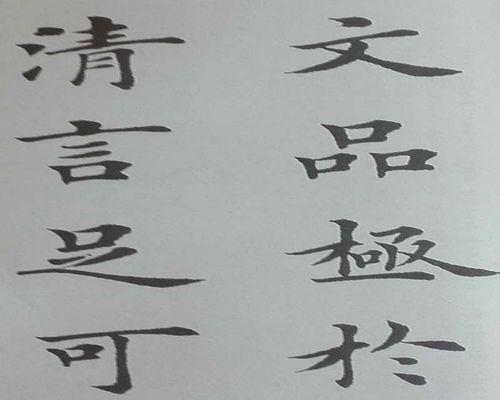 文品極於
清言足可